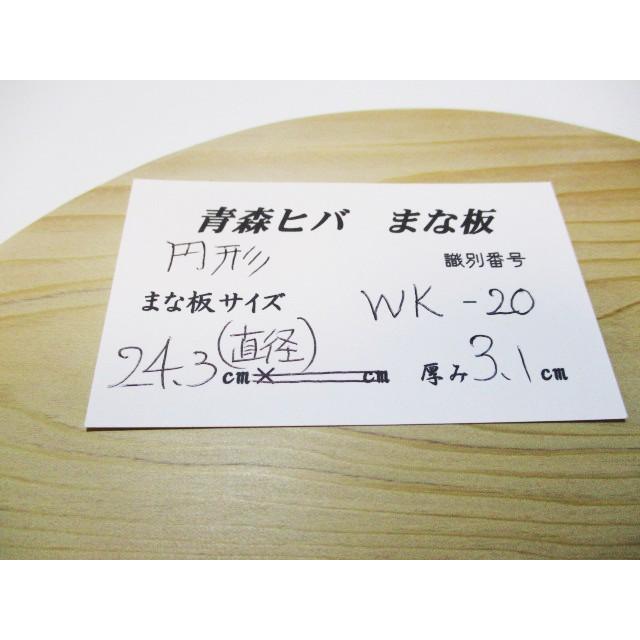 青森ヒバ まな板
円形 識別番号
まな板サイズ WK-20
24.3cm(直径)×cm 厚み3.1cm